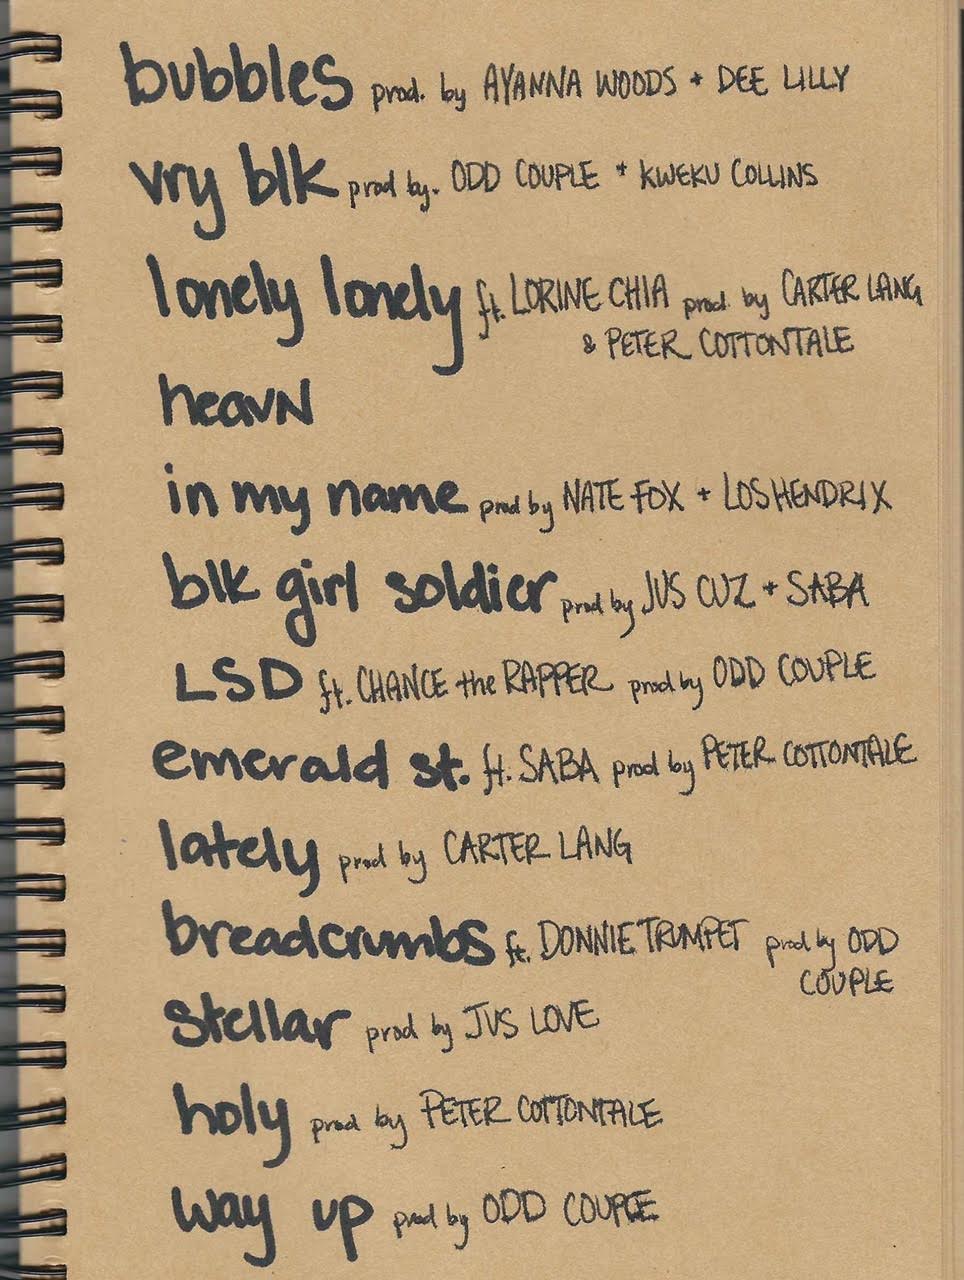 bubbles prod. by AYANNA WOODS + DEE LILLY
vry blk prod by. ODD COUPLE + KWEKU COLLINS
lonely lonely ft. LORINE CHIA prod. by CARTER LANG
& PETER COTTONTALE
heavN
in my name prod by NATE FOX + LOSHENDRIX
blk girl soldier prod by JUS CUZ + SABA
LSD ft. CHANCE the RAPPER prod by ODD COUPLE
emerald st. ft. SABA prod by PETER COTTONTALE
lately prod by CARTER LANG
breadcrumbs ft. DONNIE TRUMPET prod by ODD
COUPLE
stellar prod by JUS LOVE
holy prod by PETER COTTONTALE
way up prod by ODD COUPLE